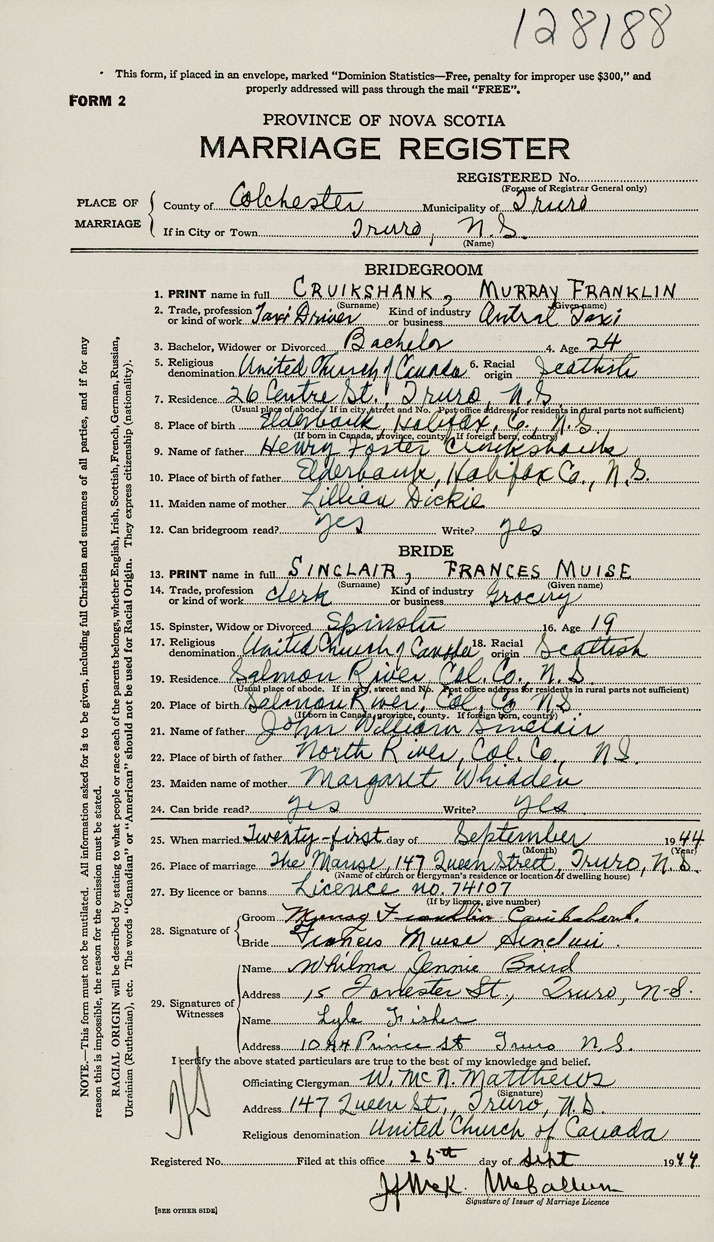 128188
This form, if placed in an envelope, marked "Dominion Statistics—Free, penalty for improper use $300," and
properly addressed will pass through the mail "FREE".
FORM 2
PROVINCE OF NOVA SCOTIA
MARRIAGE REGISTER
REGISTERED No.
(For use of Registrar General only)
PLACE OF MARRIAGE
County of Colchester Municipality of Truro
If in City or Town Truro, N.S.
(Name)
BRIDEGROOM
1. PRINT name in full CRUIKSHANK, MURRAY FRANKLIN
(Surname) (Given name)
2. Trade, profession or kind of work Taxi Driver Kind of industry or business Antral Taxi
3. Bachelor, Widower or Divorced Bachelor 4. Age 24
5. Religious denomination United Church of Canada 6. Racial origin Scottish
7. Residence 26 Centre St., Truro, N.S.
(Usual place of abode. If in city, street and No. Post office address for residents in rural parts not sufficient)
8. Place of birth Elderbank, Halifax, Co., N.S.
(If born in Canada, province, county. If foreign born, country)
9. Name of father Henry Foster Cruikshank
10. Place of birth of father Elderbank, Halifax Co., N.S.
11. Maiden name of mother Lillian Dickie
12. Can bridegroom read? yes Write? yes
BRIDE
13. PRINT name in full SINCLAIR, FRANCES MUISE
(Surname) (Given name)
14. Trade, profession or kind of work clerk Kind of industry or business Grocery
15. Spinster, Widow or Divorced Spinster 16. Age 19
17. Religious denomination United Church of Canada 18. Racial origin Scottish
19. Residence Salmon River, Col. Co., N.S.
(Usual place of abode. If in city, street and No. Post office address for residents in rural parts not sufficient)
20. Place of birth Salmon River, Col. Co. N.S.
(If born in Canada, province, county. If foreign born, country)
21. Name of father John William Sinclair
22. Place of birth of father North River, Col. Co., N.S.
23. Maiden name of mother Margaret Whidden
24. Can bride read? yes Write? yes
25. When married Twenty-first day of September 1944
(Month) (Year)
26. Place of marriage The Manse, 147 Queen Street, Truro, N.S.
(Name of church or clergyman's residence or location of dwelling house)
27. By licence or banns Licence no. 74107
(If by licence, give number)
28. Signature of
Groom Murray Franklin Cruikshank.
Bride Frances Muise Sinclair.
29. Signatures of Witnesses
Name Whilma Jennie Baird
Address 15 Forrester St., Truro, N.S.
Name Lyle Fisher
Address Prince St Truro N.S.
I certify the above stated particulars are true to the best of my knowledge and belief.
Officiating Clergyman W. McN. Matthews
(Signature)
Address 147 Queen St., Truro, N.S.
Religious denomination United Church of Canada
Registered No. Filed at this office 25th day of Sept 1944
McK. McCallum
Signature of Issuer of Marriage Licence
[SEE OTHER SIDE]
NOTE.—This form must not be mutilated. All information asked for is to be given, including full Christian and surnames of all parties, and if for any
reason this is impossible, the reason for the omission must be stated.
RACIAL ORIGIN will be described by stating to what people or race each of the parents belongs, whether English, Irish, Scottish, French, German, Russian,
Ukrainian (Ruthenian), etc. The words "Canadian" or "American" should not be used for Racial Origin. They express citizenship (nationality).